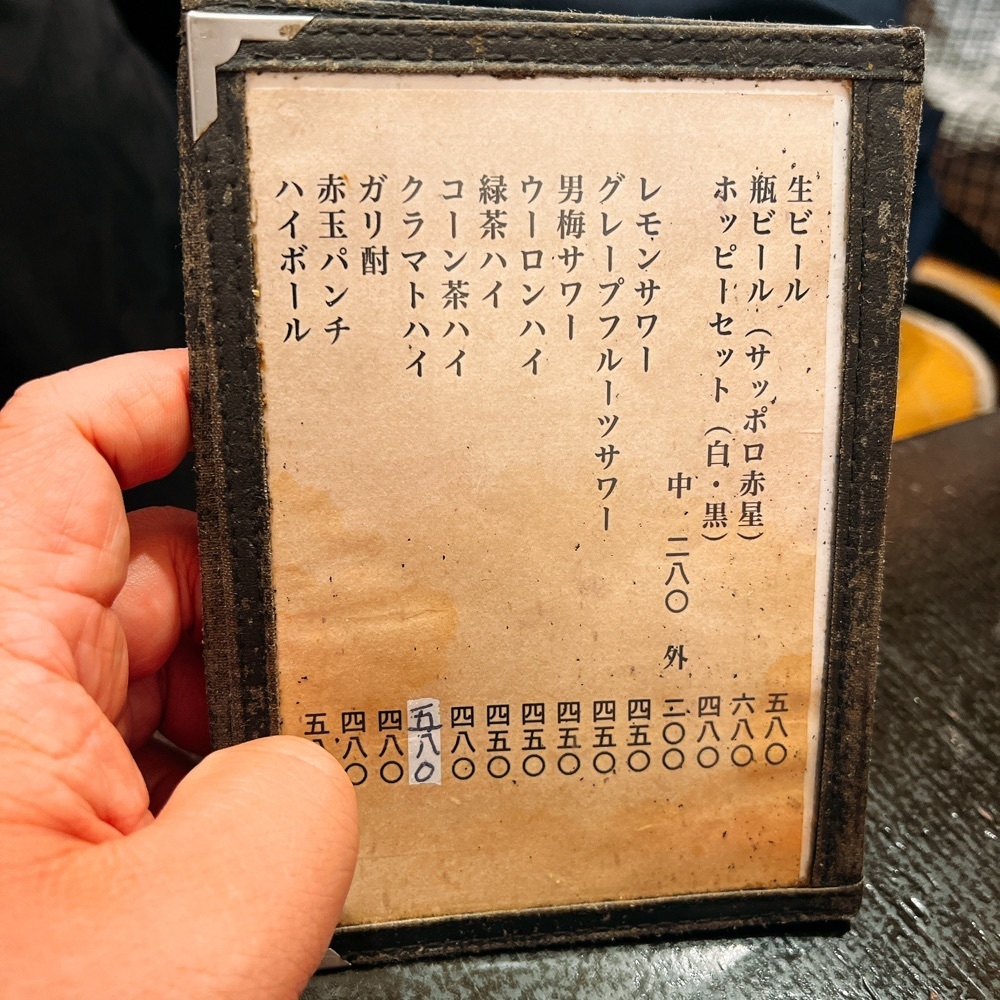 生ビール 五八〇
瓶ビール（サッポロ赤星） 六八〇
ホッピーセット（白・黒） 四八〇
中 二八〇 外 二〇〇
レモンサワー 四五〇
グレープフルーツサワー 四五〇
男梅サワー 四五〇
ウーロンハイ 四五〇
緑茶ハイ 四五〇
コーン茶ハイ 四八〇
クラマトハイ 五八〇
ガリ酎 四八〇
赤玉パンチ 四八〇
ハイボール 五